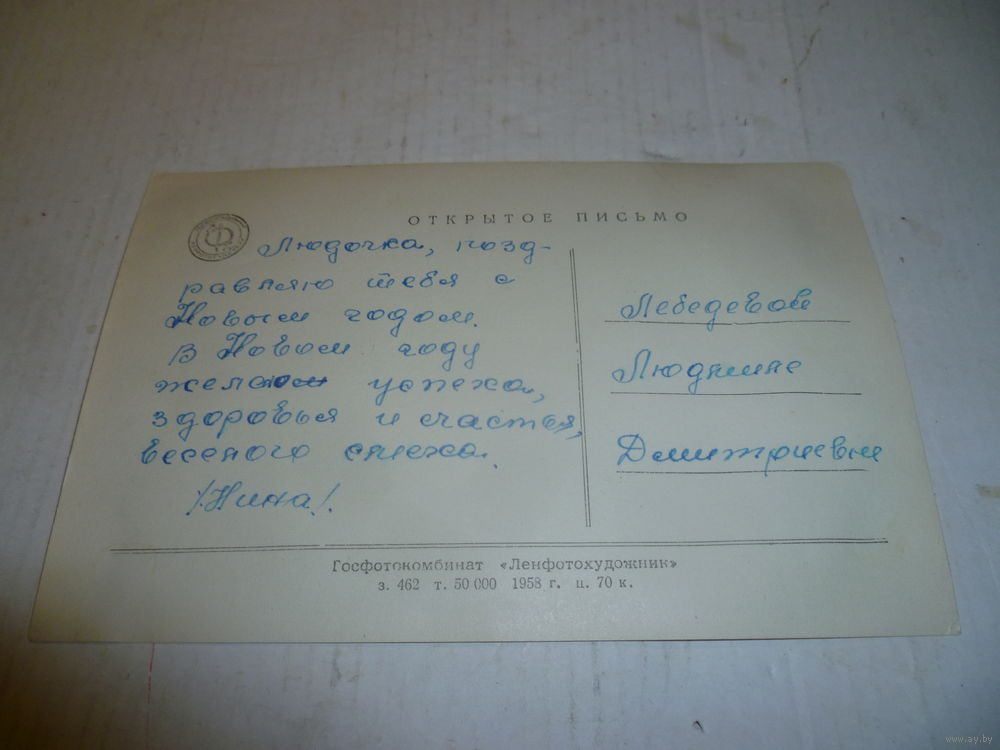 ОТКРЫТОЕ ПИСЬМО
Людочка, позд-
равляю тебя с
Новым годом.
В Новом году
желаю успеха,
здоровья и счастья,
веселого смеха.
/Нина/.
Лебедевой
Людмиле
Дмитриевне
Госфотокомбинат «Ленфотохудожник»
з. 462 т. 50 000 1958 г. ц. 70 к.
www.ay.by